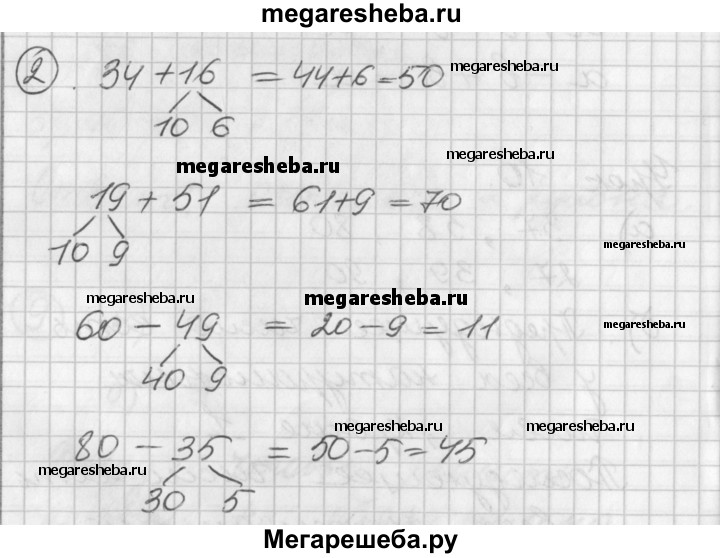 megaresheba.ru
2. 34 + 16 = 44 + 6 = 50 megaresheba.ru
10 6
megaresheba.ru megaresheba.ru
19 + 51 = 61 + 9 = 70
10 9 megaresheba.ru
megaresheba.ru megaresheba.ru
60 - 49 = 20 - 9 = 11
40 9
megaresheba.ru megaresheba.ru
80 - 35 = 50 - 5 = 45
megaresheba.ru
30 5
Мегарешеба.ру